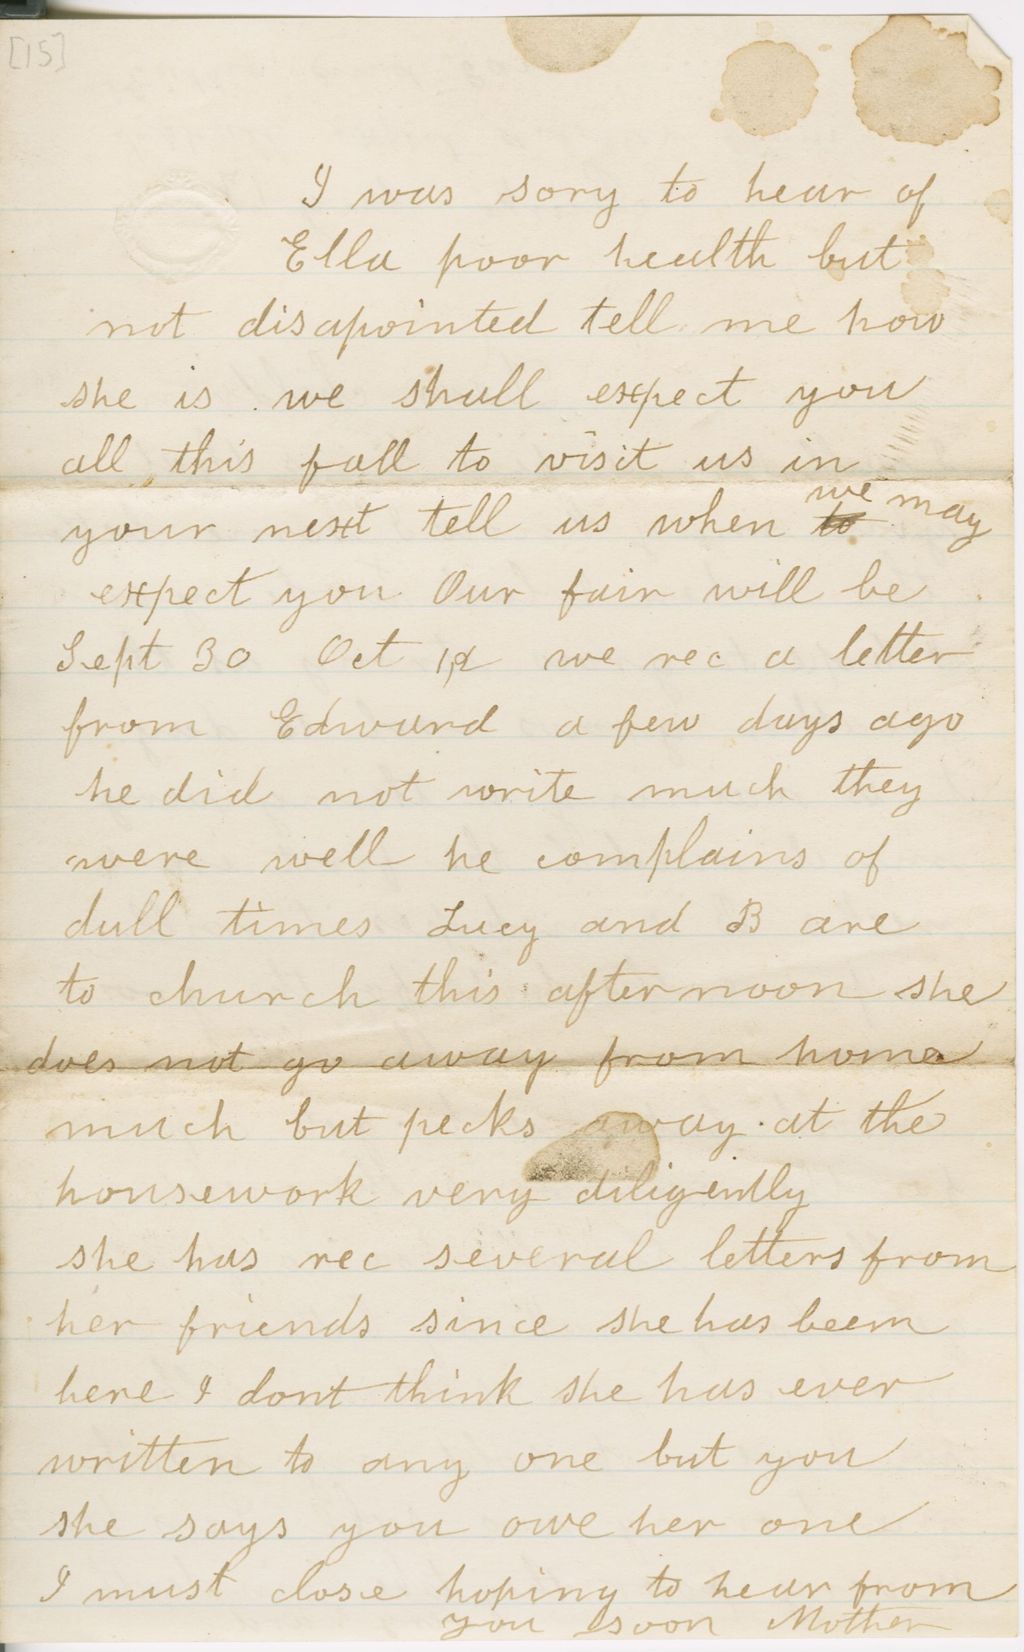 [15]
I was sory to hear of
Ella poor health but
not disapointed tell me how
she is we shall expect you
all this fall to visit us in
your next tell us when to we may
expect you Our fair will be
Sept 30 Oct 1, 2 we rec a letter
from Edward a few days ago
he did not write much they
were well he complains of
dull times Lucy and B are
to church this afternoon she
does not go away from home
much but pecks away at the
housework very diligently
she has rec several letters from
her friends since she has beem
here I dont think she has ever
written to any one but you
she says you owe her one
I must close hoping to hear from
you soon Mother